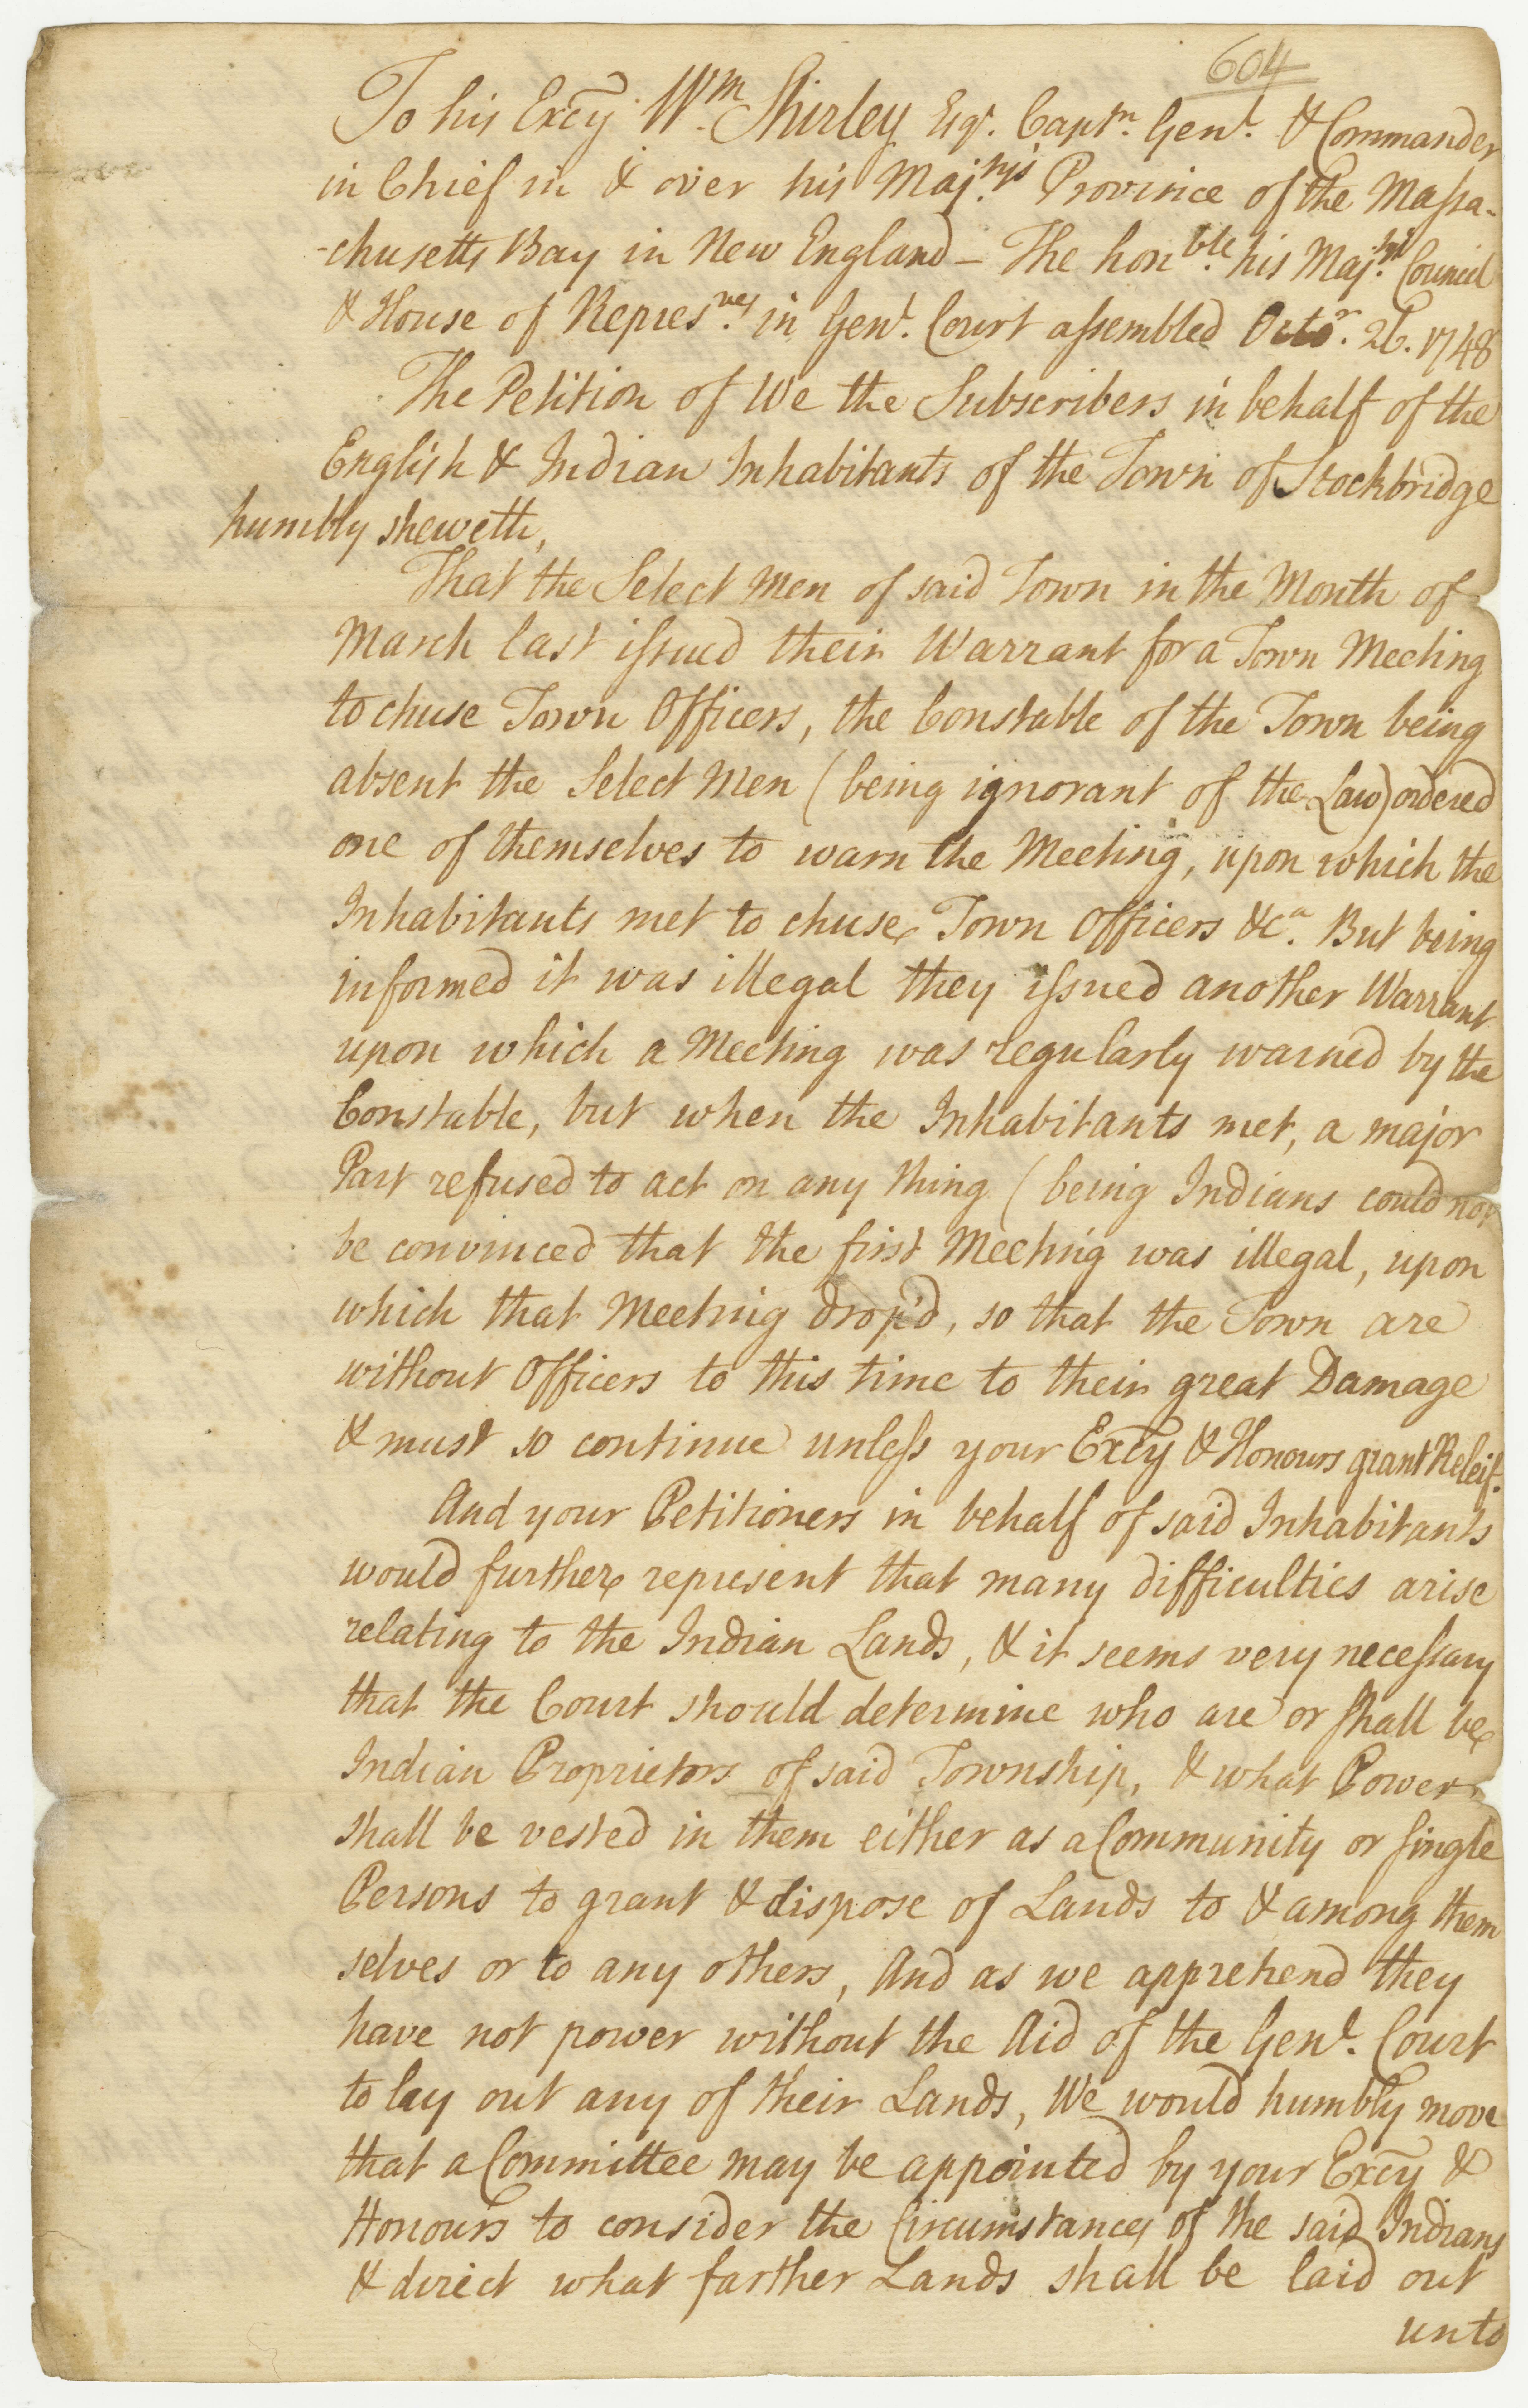 604
To his Excy Wm. Shirley Esqr. Captn. Genl. & Commander
in Chief in & over his Maj.tys Province of the Massa-
-chusetts Bay in New England – The honble. his Maj.tys Council
& House of Represves. in Genl. Court assembled Octor. 26. 1748
The Petition of We the Subscribers in behalf of the
English & Indian Inhabitants of the Town of Stockbridge
humbly sheweth,
That the Select Men of said Town in the Month of
March last issued their Warrant for a Town Meeting
to chuse Town Officers, the Constable of the Town being
absent the Select Men (being ignorant of the Law) ordered
one of themselves to warn the Meeting, upon which the
Inhabitants met to chuse Town Officers &ca. But being
informed it was illegal they issued another Warrant
upon which a Meeting was regularly warned by the
Constable, but when the Inhabitants met, a major
Part refused to act on any thing (being Indians could not
be convinced that the first Meeting was illegal, upon
which that Meeting drop'd, so that the Town are
without Officers to this time to their great Damage
& must so continue unless your Excy & Honours grant Releif.
And your Petitioners in behalf of said Inhabitants
would further represent that many difficulties arise
relating to the Indian Lands, & it seems very necessary
that the Court should determine who are or shall be
Indian Proprietors of said Township, & what Power
shall be vested in them either as a Community or single
Persons to grant & dispose of Lands to & among them
selves or to any others, And as we apprehend they
have not power without the Aid of the Genl. Court
to lay out any of their Lands, We would humbly move
that a Committee may be appointed by your Excy &
Honours to consider the Circumstances of the said Indians
& direct what farther Lands shall be laid out
unto